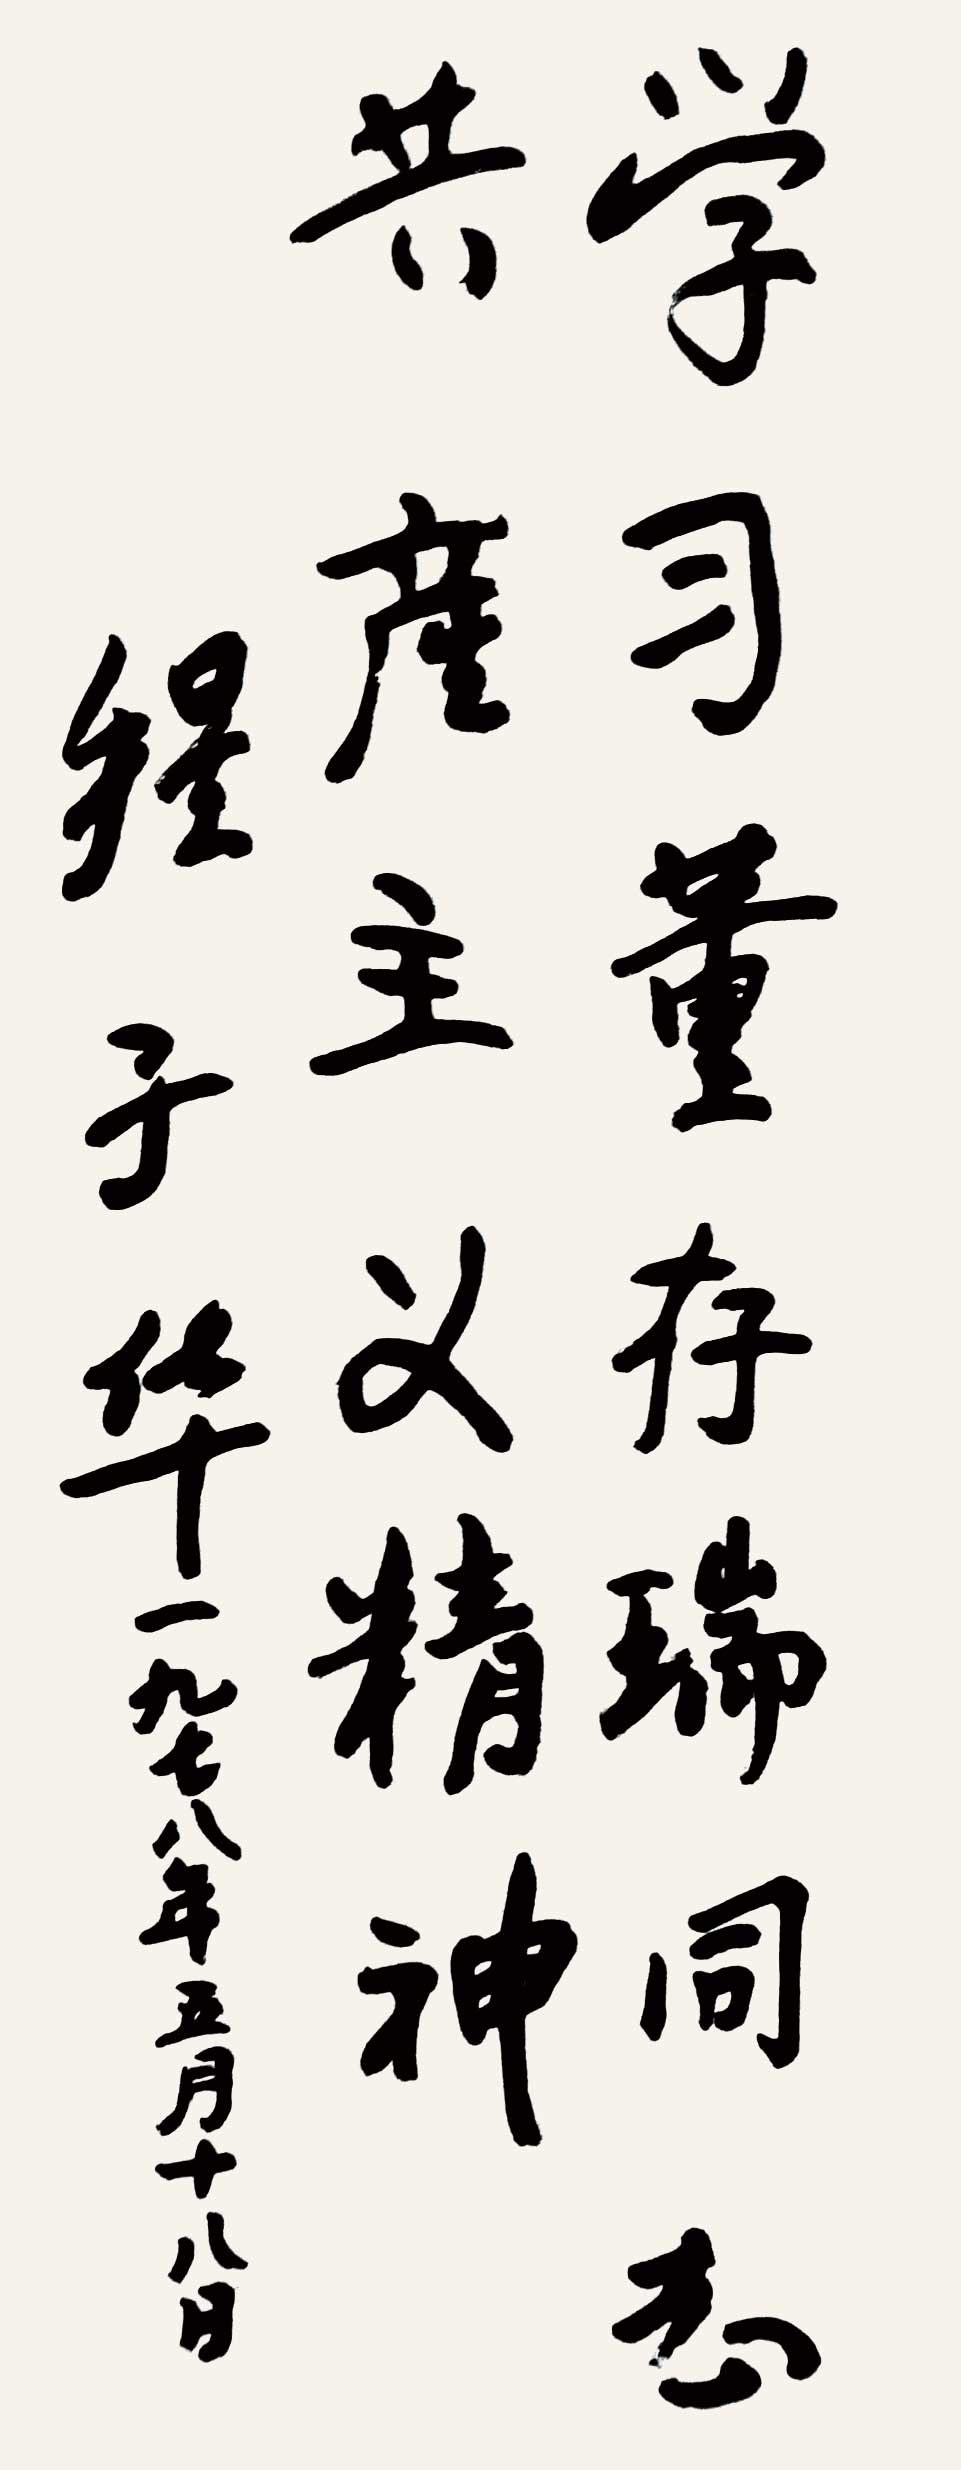 学习董存瑞同志
共产主义精神
程子华 一九七八年五月十八日